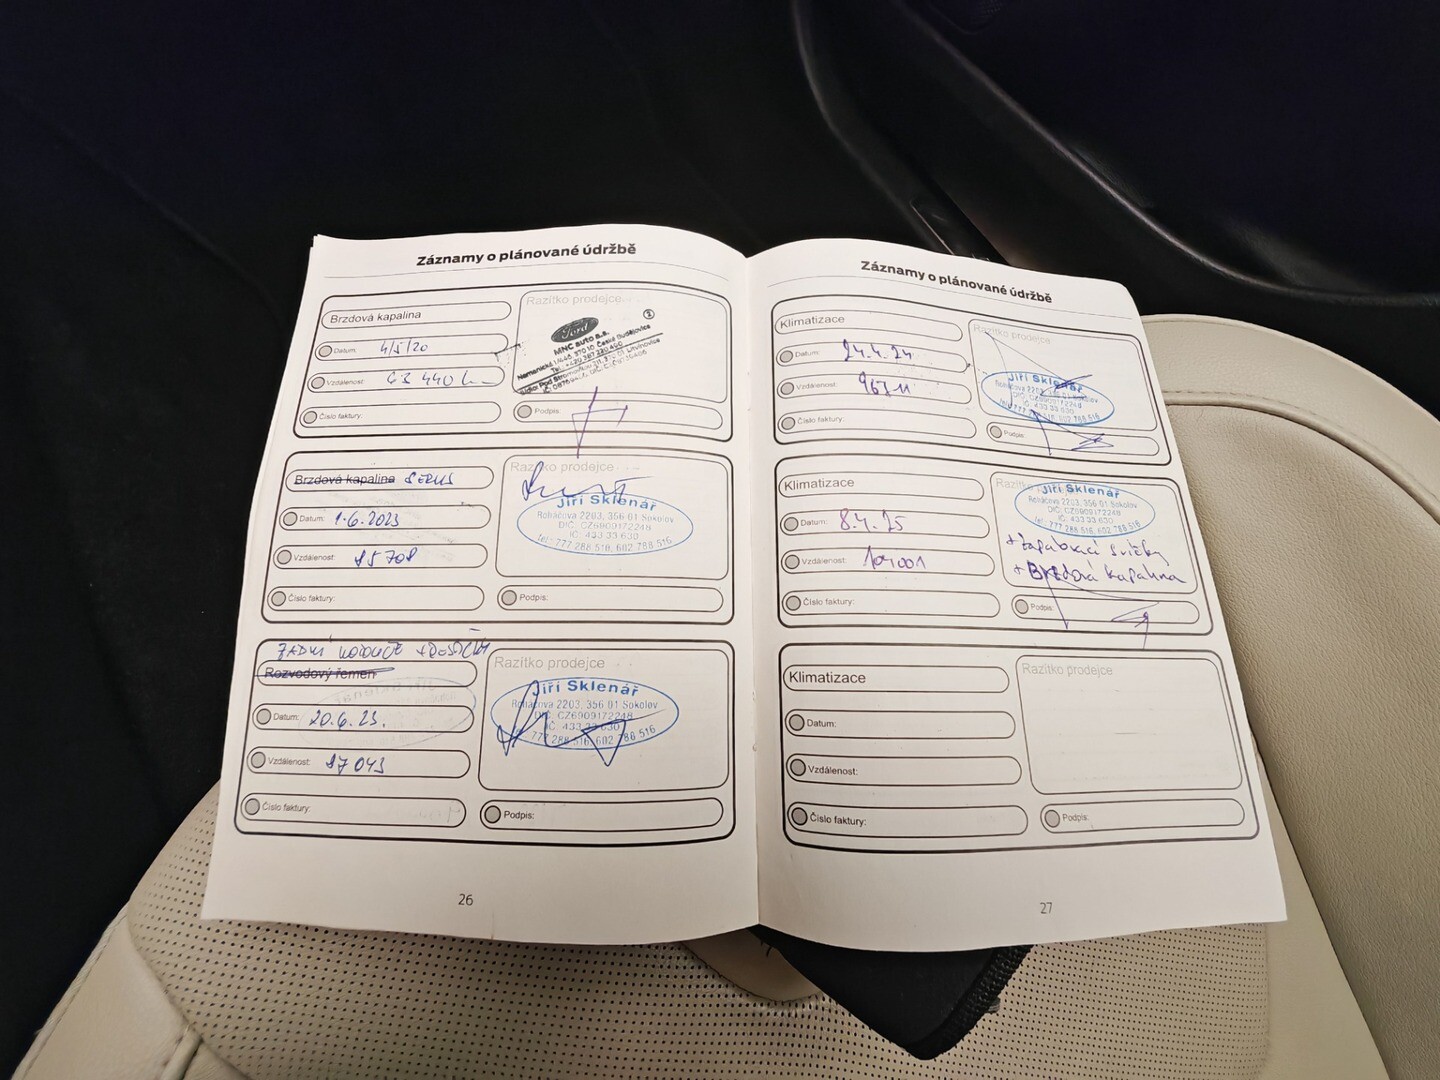 Záznamy o plánované údržbě
Brzdová kapalina
Razítko prodejce
Ford
MNC auto s.s.
Datum: 4/5/20
Vzdálenost: 63 440 km
Číslo faktury:
Podpis:
Brzdová kapalina SERVIS
Razítko prodejce
Jiří Sklenář
Roháčova 2203, 356 01 Sokolov
DIČ: CZ6909172248
IČ: 433 33 630
tel.: 777 288 516, 602 788 516
Datum: 1.6.2023
Vzdálenost: 85708
Číslo faktury:
Podpis:
ZADNÍ KOTOUČE + DESTIČKY
Rozvodový řemen
Razítko prodejce
Jiří Sklenář
Roháčova 2203, 356 01 Sokolov
DIČ: CZ6909172248
IČ: 433 33 630
777 288 516, 602 788 516
Datum: 20.6.23.
Vzdálenost: 87043
Číslo faktury:
Podpis:
26
Záznamy o plánované údržbě
Klimatizace
Razítko prodejce
Jiří Sklenář
Roháčova 2203, 356 01 Sokolov
DIČ: CZ6909172248
IČ: 433 33 630
tel.: 777 288 516, 602 788 516
Datum: 24.4.24
Vzdálenost: 96711
Číslo faktury:
Podpis:
Klimatizace
Jiří Sklenář
Roháčova 2203, 356 01 Sokolov
DIČ: CZ6909172248
IČ: 433 33 630
tel.: 777 288 516, 602 788 516
Datum: 8.4.25
+ zapalovací svíčky
Vzdálenost: 104001
+ Brzdová kapalina
Číslo faktury:
Podpis:
Klimatizace
Razítko prodejce
Datum:
Vzdálenost:
Číslo faktury:
Podpis:
27